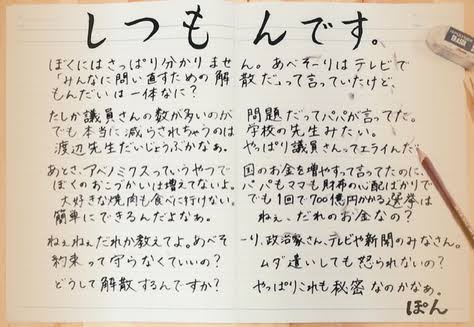 しつもんです。
ぼくにはさっぱり分かりません。あべそーりはテレビで
「みんなに問い直すための解散だ」って言っていたけど、
もんだいは一体なに?
たしか議員さんの数が多いのが問題だってパパが言ってた。
でも本当に減らされちゃうのは学校の先生みたい。
渡辺先生だいじょうぶかなぁ。やっぱり議員さんってエライんだ。
あとさ、アベノミクスっていうやつで国のお金を増やすって言ってたのに、
ぼくのおこづかいは増えてないよ。パパもママも財布の心配ばかりで
大好きな焼肉も食べに行けない。でも1回で700億円かかる選挙は
簡単にできるんだよなぁ。ねぇ、だれのお金なの?
ねぇねぇだれか教えてよ。あべそーり、政治家さん、テレビや新聞のみなさん。
約束って守らなくていいの? ムダ遣いしても怒られないの?
どうして解散するんですか? やっぱりこれも秘密なのかなぁ。
ぽん